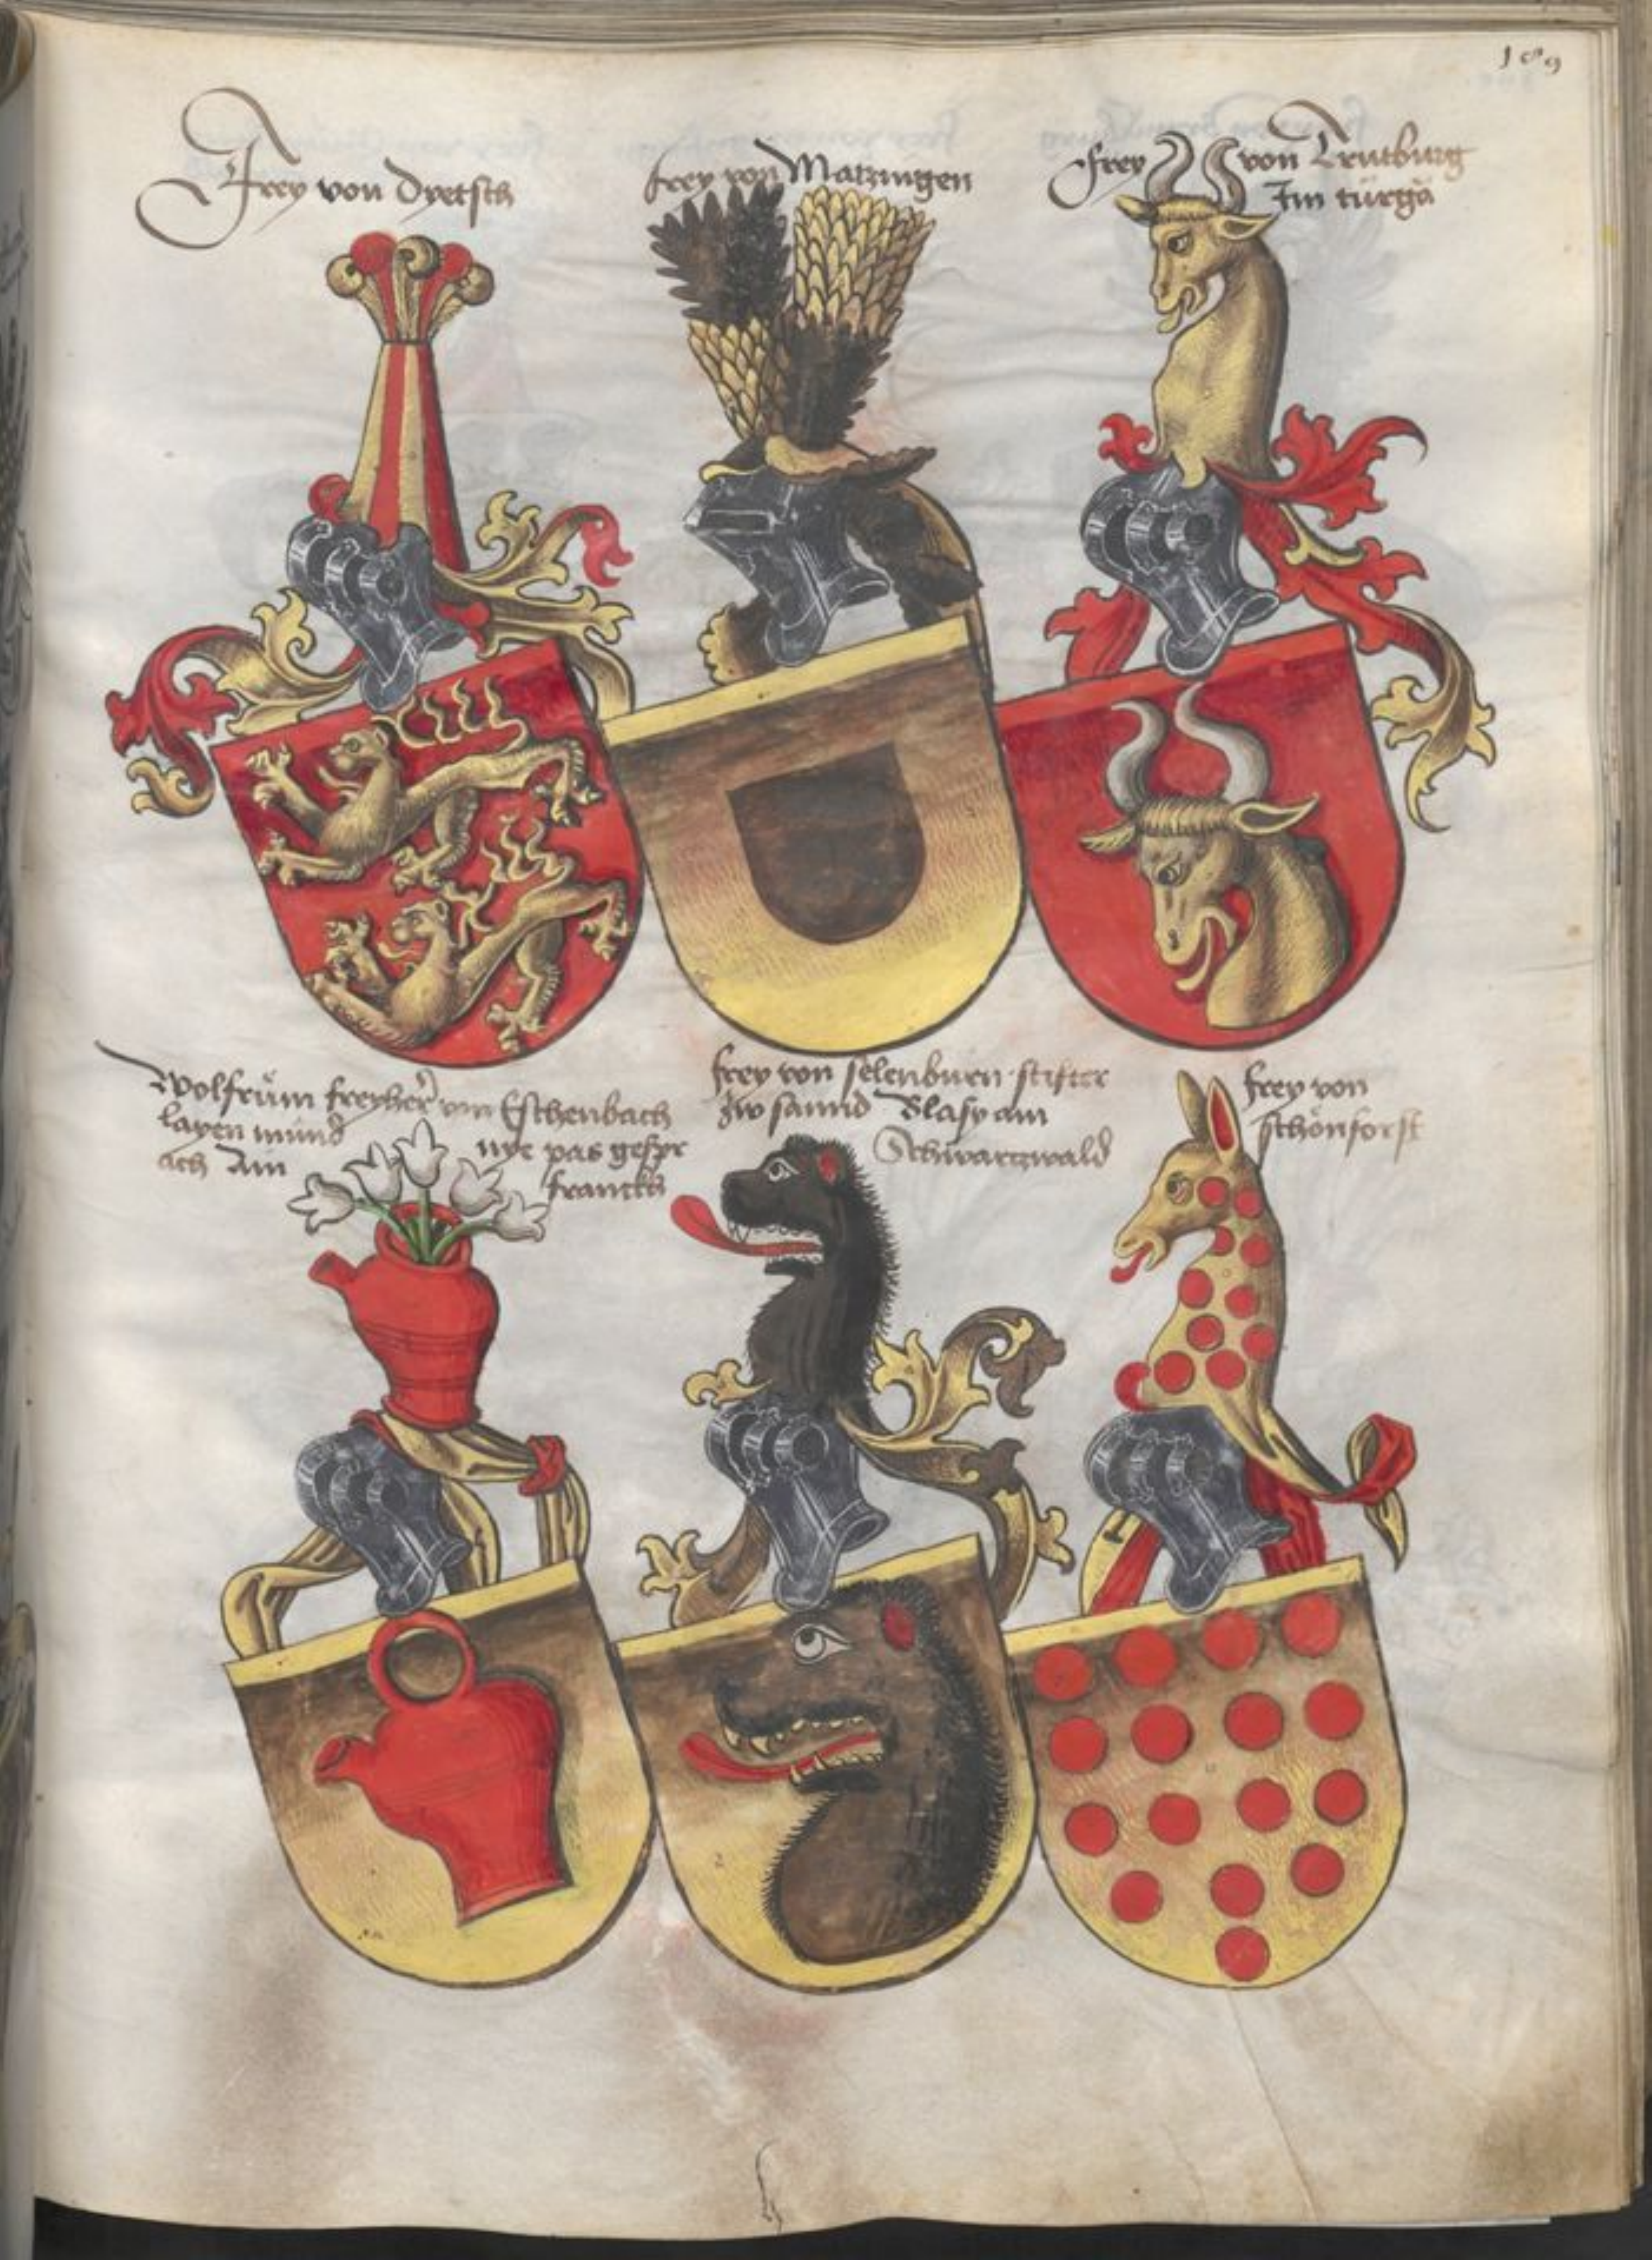 189
Frey von Dyetsch
frey von Matzingen
Frey von Trutburg
Im türgä
Wolfrum freyher von Eschenbach
layen mund nye pas gespr
ach Am franckh
frey von selenburn stifter
zw sannd Blasy am
Schwartzwald
frey von
schönforst